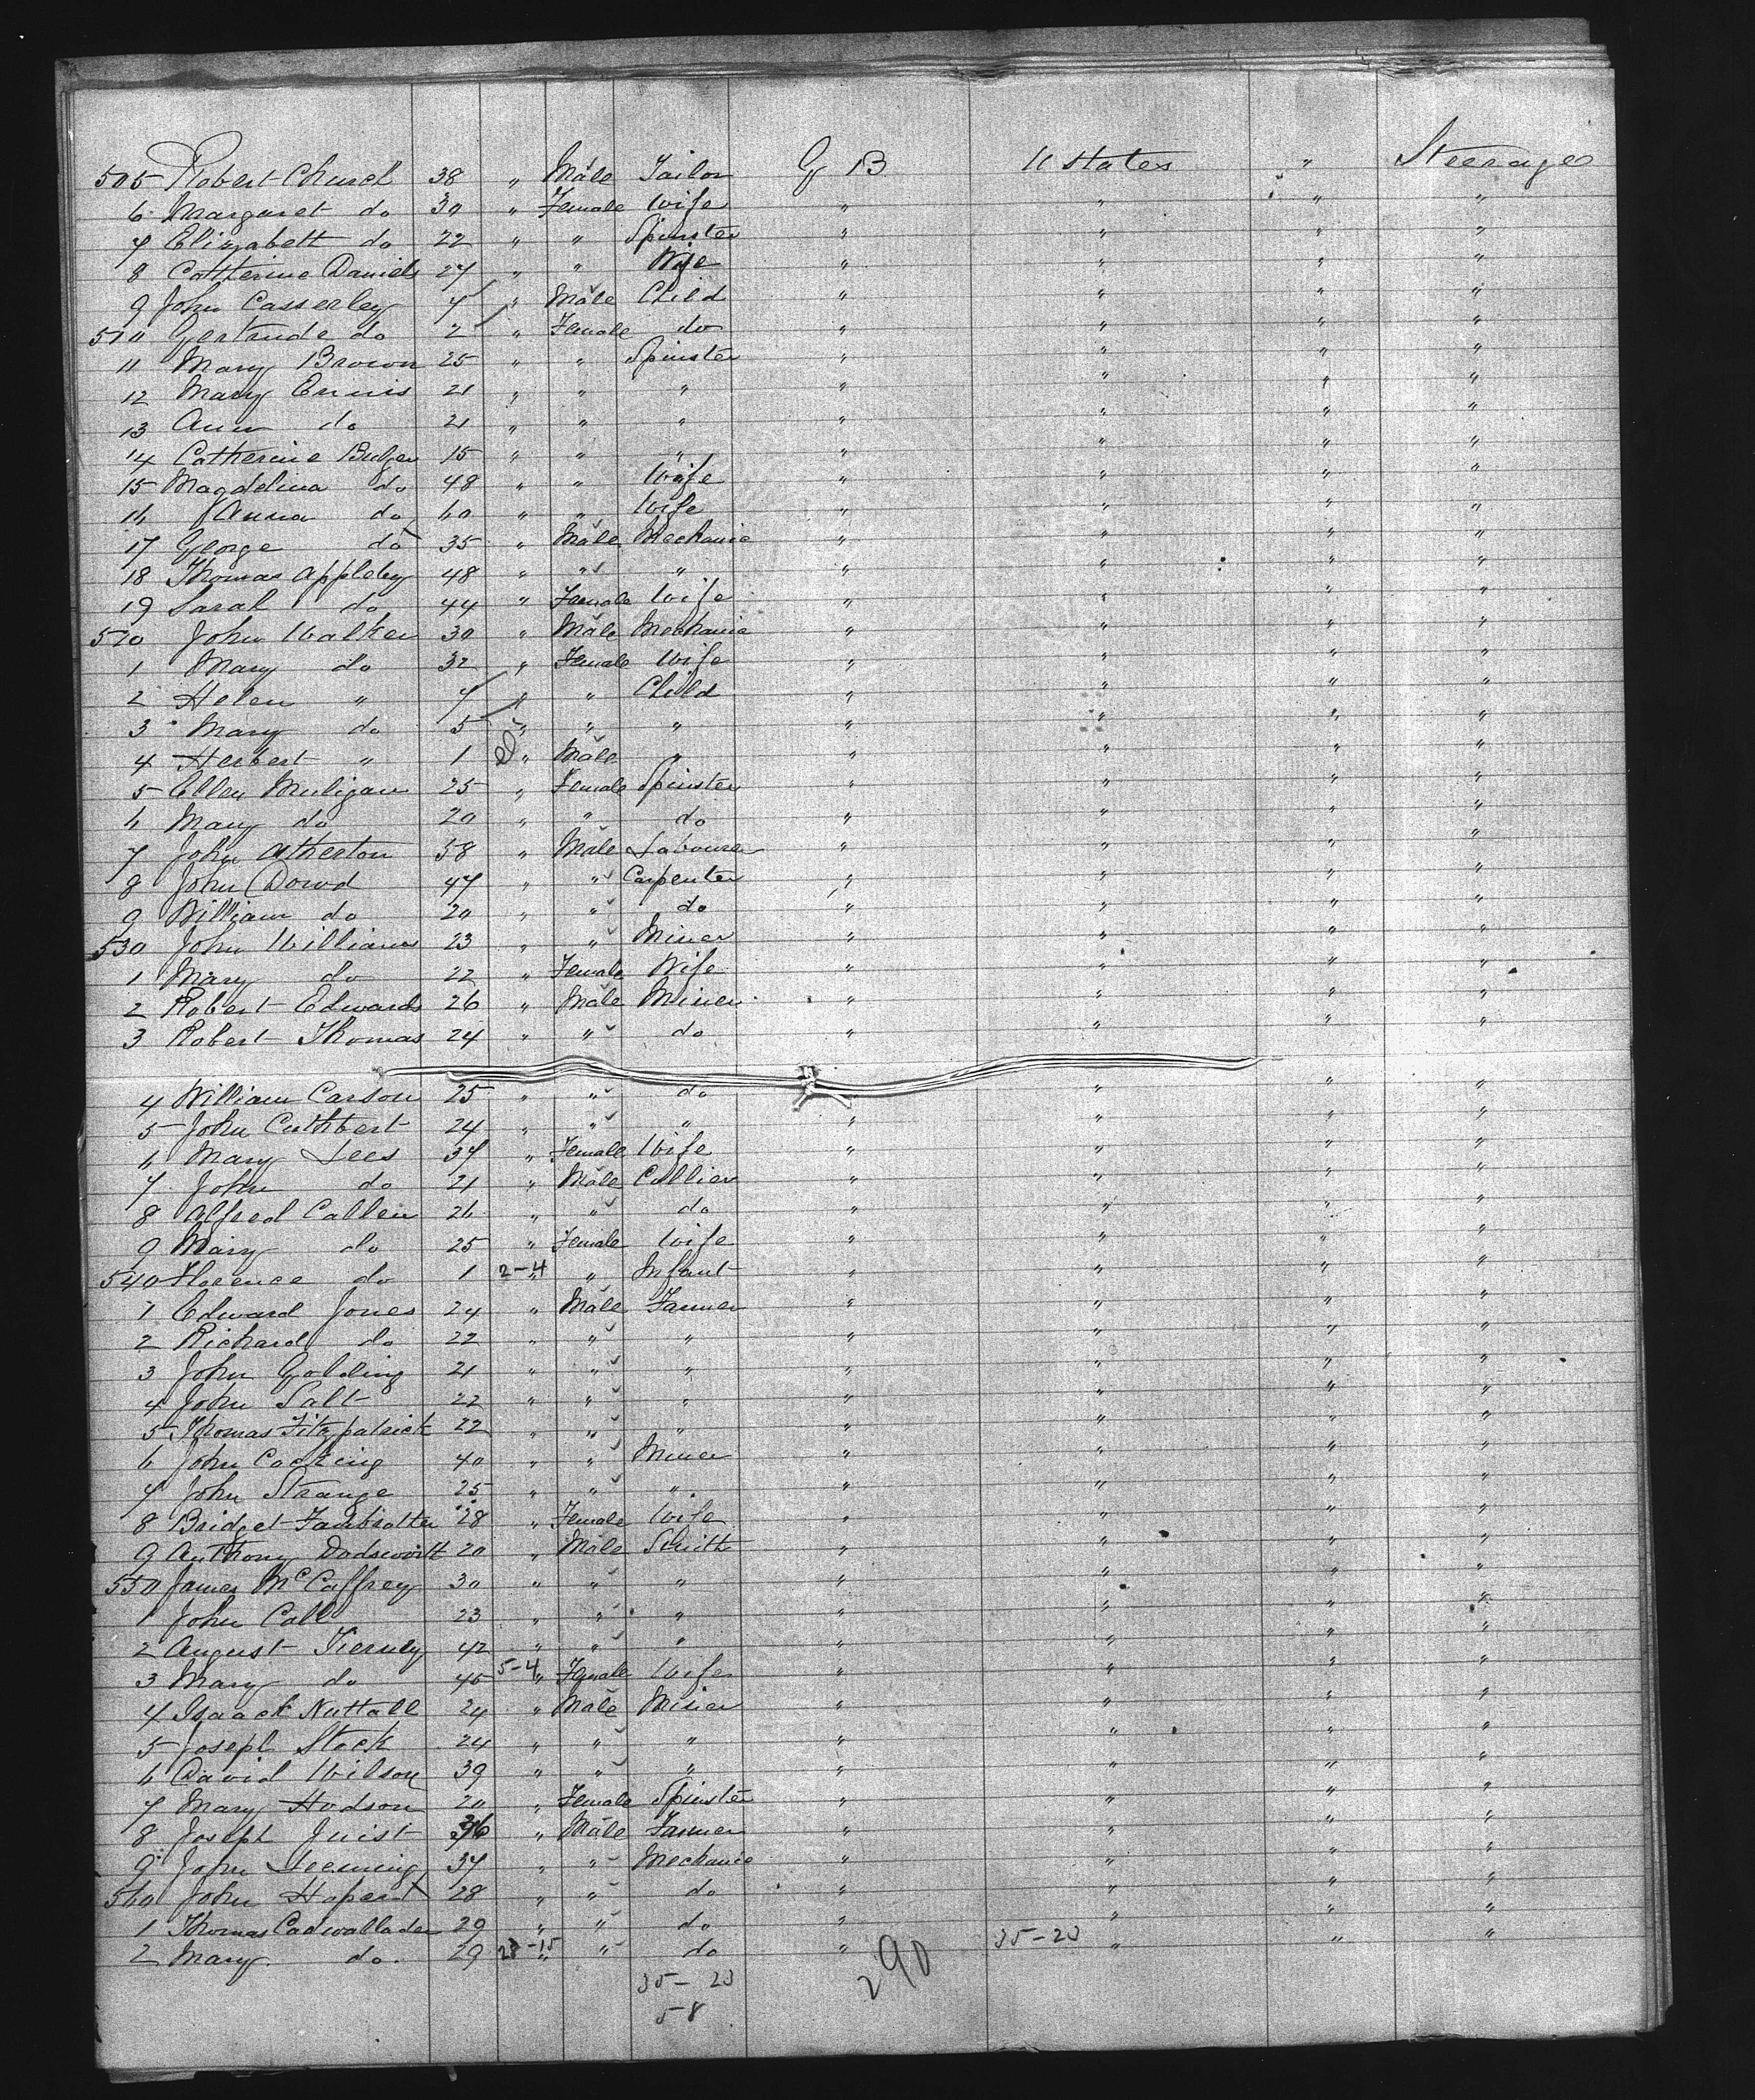 505 Robert Church 38 " Male Tailor G B U States " Steerage
6 Margaret do 30 " Female Wife " " " "
7 Elizabeth do 22 " " Spinster " " " "
8 Catherine Daniels 27 " " Wife " " " "
9 John Casserley 7 " Male Child " " " "
510 Gertrude do 2 " Female do " " " "
11 Mary Brown 25 " " Spinster " " " "
12 Mary Ennis 21 " " " " " " "
13 Ann do 21 " " " " " " "
14 Catherine Bulger 15 " " " " " " "
15 Magdelina do 48 " " Wife " " " "
16 Anna do 60 " " Wife " " " "
17 George do 35 " Male Mechanic " " " "
18 Thomas Appleby 48 " " " " " " "
19 Sarah do 44 " Female Wife " " " "
520 John Walker 30 " Male Mechanic " " " "
1 Mary do 32 " Female Wife " " " "
2 Helen " 7 " " Child " " " "
3 Mary do 5 " " " " " " "
4 Herbert " 1 " Male " " " " "
5 Ellen Muligan 25 " Female Spinster " " " "
6 Mary do 20 " " do " " " "
7 John Atherton 58 " Male Labourer " " " "
8 John Dowd 47 " " Carpenter " " " "
9 William do 20 " " do " " " "
530 John Williams 23 " " Miner " " " "
1 Mary do 22 " Female Wife " " " "
2 Robert Edwards 26 " Male Miner " " " "
3 Robert Thomas 24 " " do " " " "
4 William Carson 25 " " do " " "
5 John Cuthbert 24 " " " " " " "
6 Mary Lees 37 " Female Wife " " " "
7 John do 21 " Male Collier " " " "
8 Alfred Callen 26 " " do " " " "
9 Mary do 25 " Female Wife " " " "
540 Florence do 1 2-4 " " Infant " " " "
1 Edward Jones 24 " Male Farmer " " " "
2 Richard do 22 " " " " " " "
3 John Golding 21 " " " " " " "
4 John Salt 22 " " " " " " "
5 Thomas Fitzpatrick 22 " " " " " " "
6 John Cocking 40 " " Miner " " " "
7 John Strange 25 " " " " " " "
8 Bridget 28 " Female Wife " " " "
9 Anthony Dodsworth 20 " Male Smith " " " "
550 James McCaffrey 30 " " " " " " "
1 John Call 23 " " " " " " "
2 August Tierney 42 " " " " " " "
3 Mary do 45 5-4 " Female Wife " " " "
4 Isaack Nuttall 24 " Male Miner " " " "
5 Joseph Stock 24 " " " " " " "
6 David Wilson 39 " " " " " " "
7 Mary Hodson 20 " Female Spinster " " " "
8 Joseph 36 " Male Farmer " " " "
9 John Leeming 37 " " Mechanic " " " "
560 John 28 " " do " " " "
1 Thomas Cadwallader 29 " " do " " " "
2 Mary do. 29 23-15 " " do " 35-23 " " "
35-23
58
290